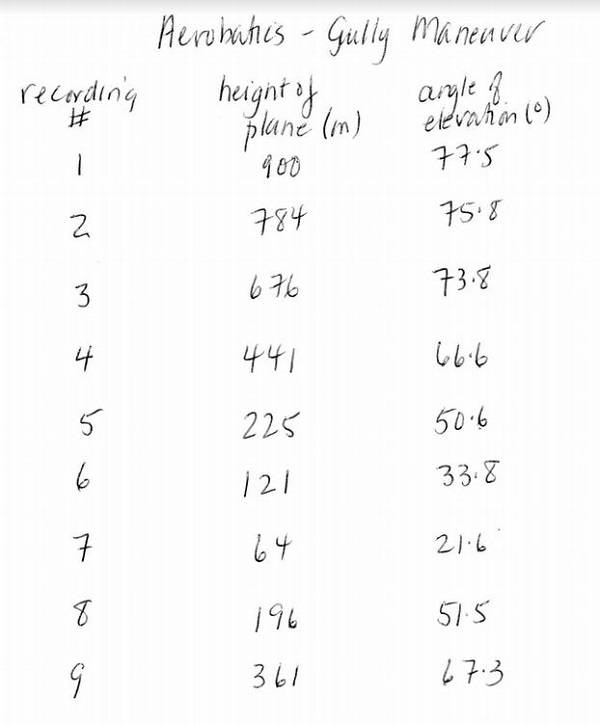 Aerobatics - Gully Maneuver
recording height of angle of
# plane (m) elevation (°)
1 900 77.5
2 784 75.8
3 676 73.8
4 441 66.6
5 225 50.6
6 121 33.8
7 64 21.6
8 196 51.5
9 361 67.3